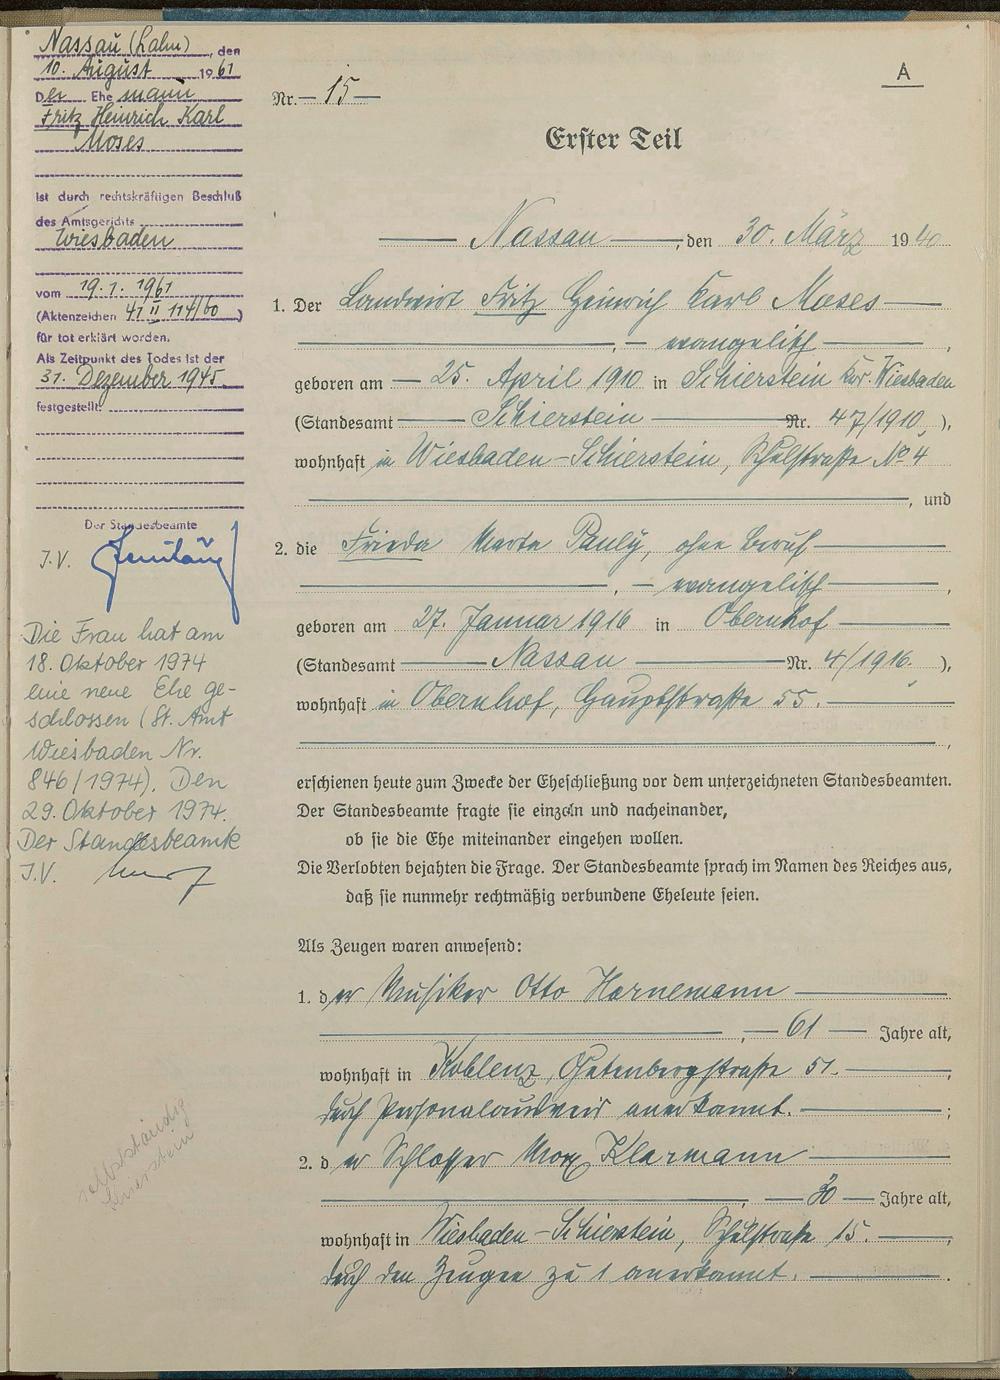 Nassau (Lahn), den
10. August 1961
Der Ehemann
Fritz Heinrich Karl
Moses
ist durch rechtskräftigen Beschluß
des Amtsgerichts
Wiesbaden
vom 19.1.1961
(Aktenzeichen 41 II 114/60)
für tot erklärt worden.
Als Zeitpunkt des Todes ist der
31. Dezember 1945
festgestellt.
Der Standesbeamte
I.V.
Die Frau hat am
18. Oktober 1974
eine neue Ehe ge-
schlossen (St. Amt
Wiesbaden Nr.
846/1974). Den
29. Oktober 1974.
Der Standesbeamte
I.V.
selbständig
A
Nr. 15
Erster Teil
Nassau, den 30. März 1940
1. Der Landwirt Fritz Heinrich Karl Moses
, evangelisch,
geboren am 25. April 1910 in Schierstein Kr. Wiesbaden
(Standesamt Schierstein Nr. 47/1910),
wohnhaft in Wiesbaden-Schierstein, Schulstraße No 4
, und
2. die Frieda Marta Pauly, ohne Beruf
, evangelisch,
geboren am 27. Januar 1916 in Obernhof
(Standesamt Nassau Nr. 4/1916.),
wohnhaft in Obernhof, Hauptstraße 55.
,
erschienen heute zum Zwecke der Eheschließung vor dem unterzeichneten Standesbeamten.
Der Standesbeamte fragte sie einzeln und nacheinander,
ob sie die Ehe miteinander eingehen wollen.
Die Verlobten bejahten die Frage. Der Standesbeamte sprach im Namen des Reiches aus,
daß sie nunmehr rechtmäßig verbundene Eheleute seien.
Als Zeugen waren anwesend:
1. der Musiker Otto Hornemann
, 61 Jahre alt,
wohnhaft in Koblenz, Gutenbergstraße 51.
durch Personalausweis anerkannt. ;
2. der Schlosser Max Klarmann
, 30 Jahre alt,
wohnhaft in Wiesbaden-Schierstein, Schulstraße 15. ,
durch den Zeugen zu 1 anerkannt. .